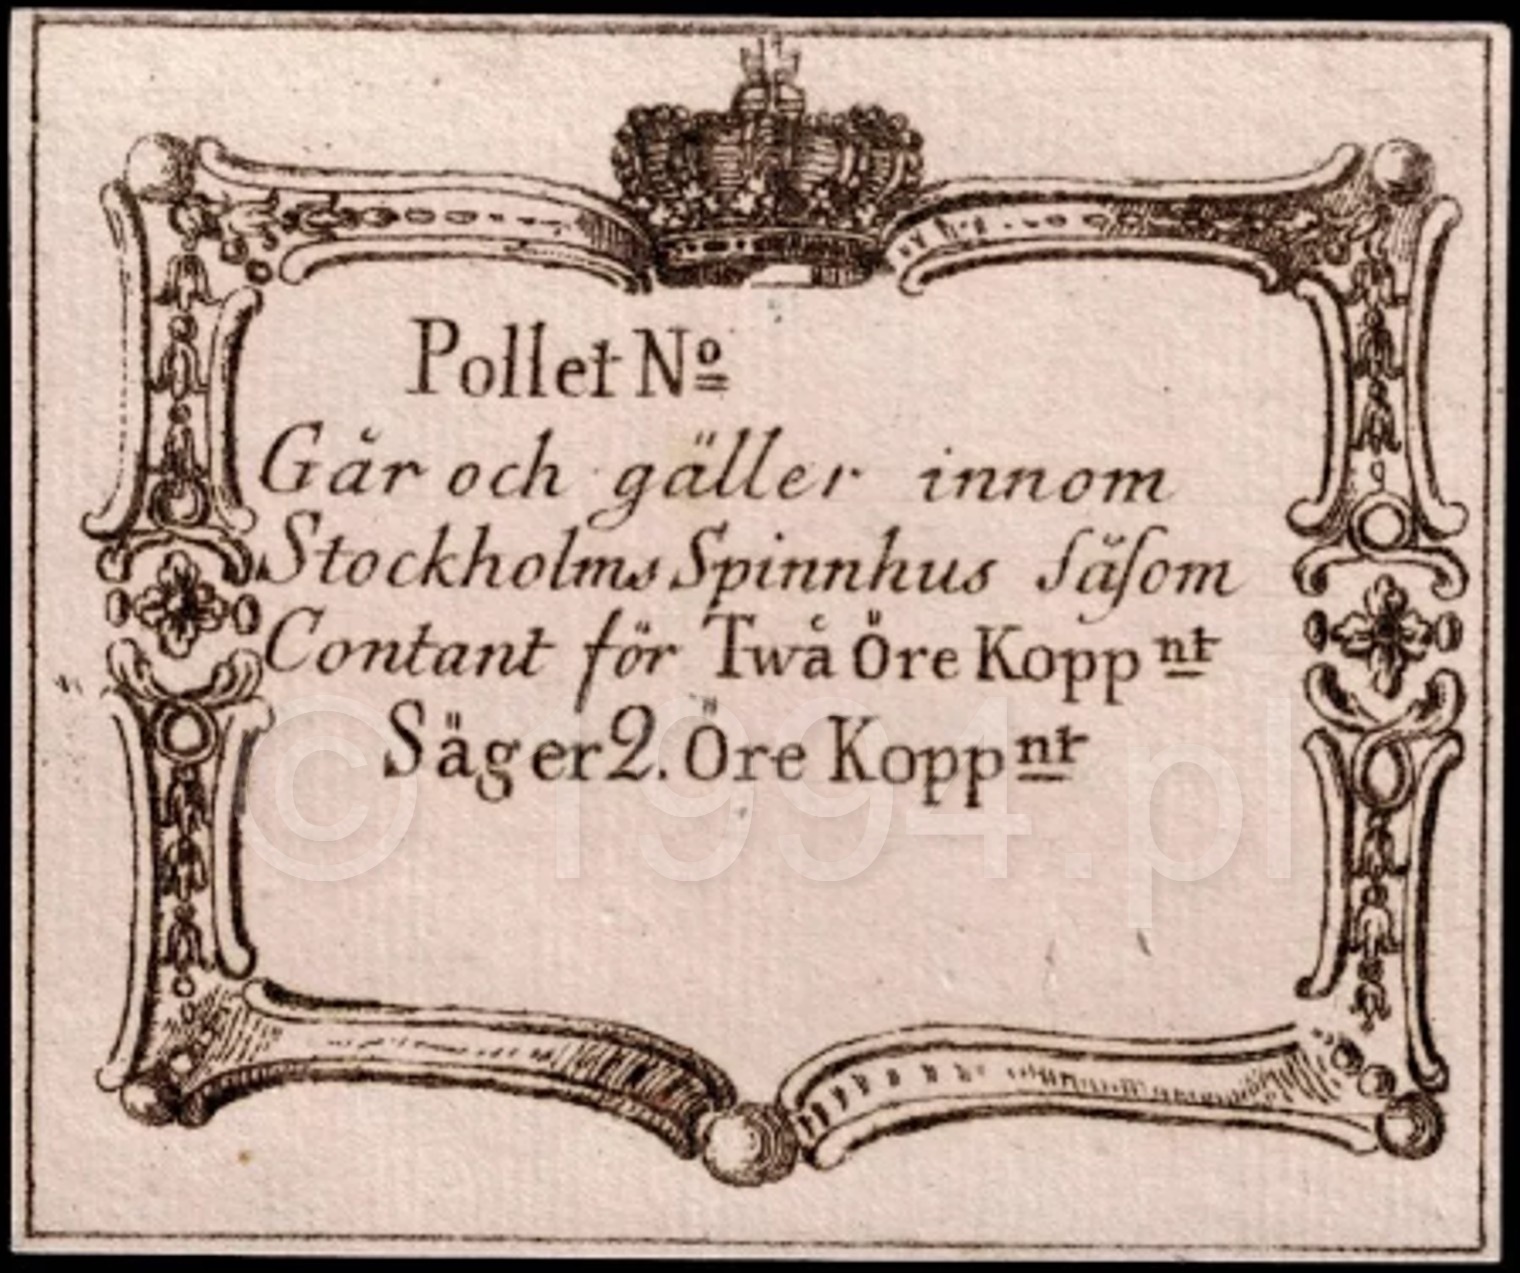 Pollet Nº
Går och gäller innom
Stockholms Spinnhus ſåſom
Contant för Twå Öre Kopp nt
Säger 2. Öre Kopp nt
© 1994.pl